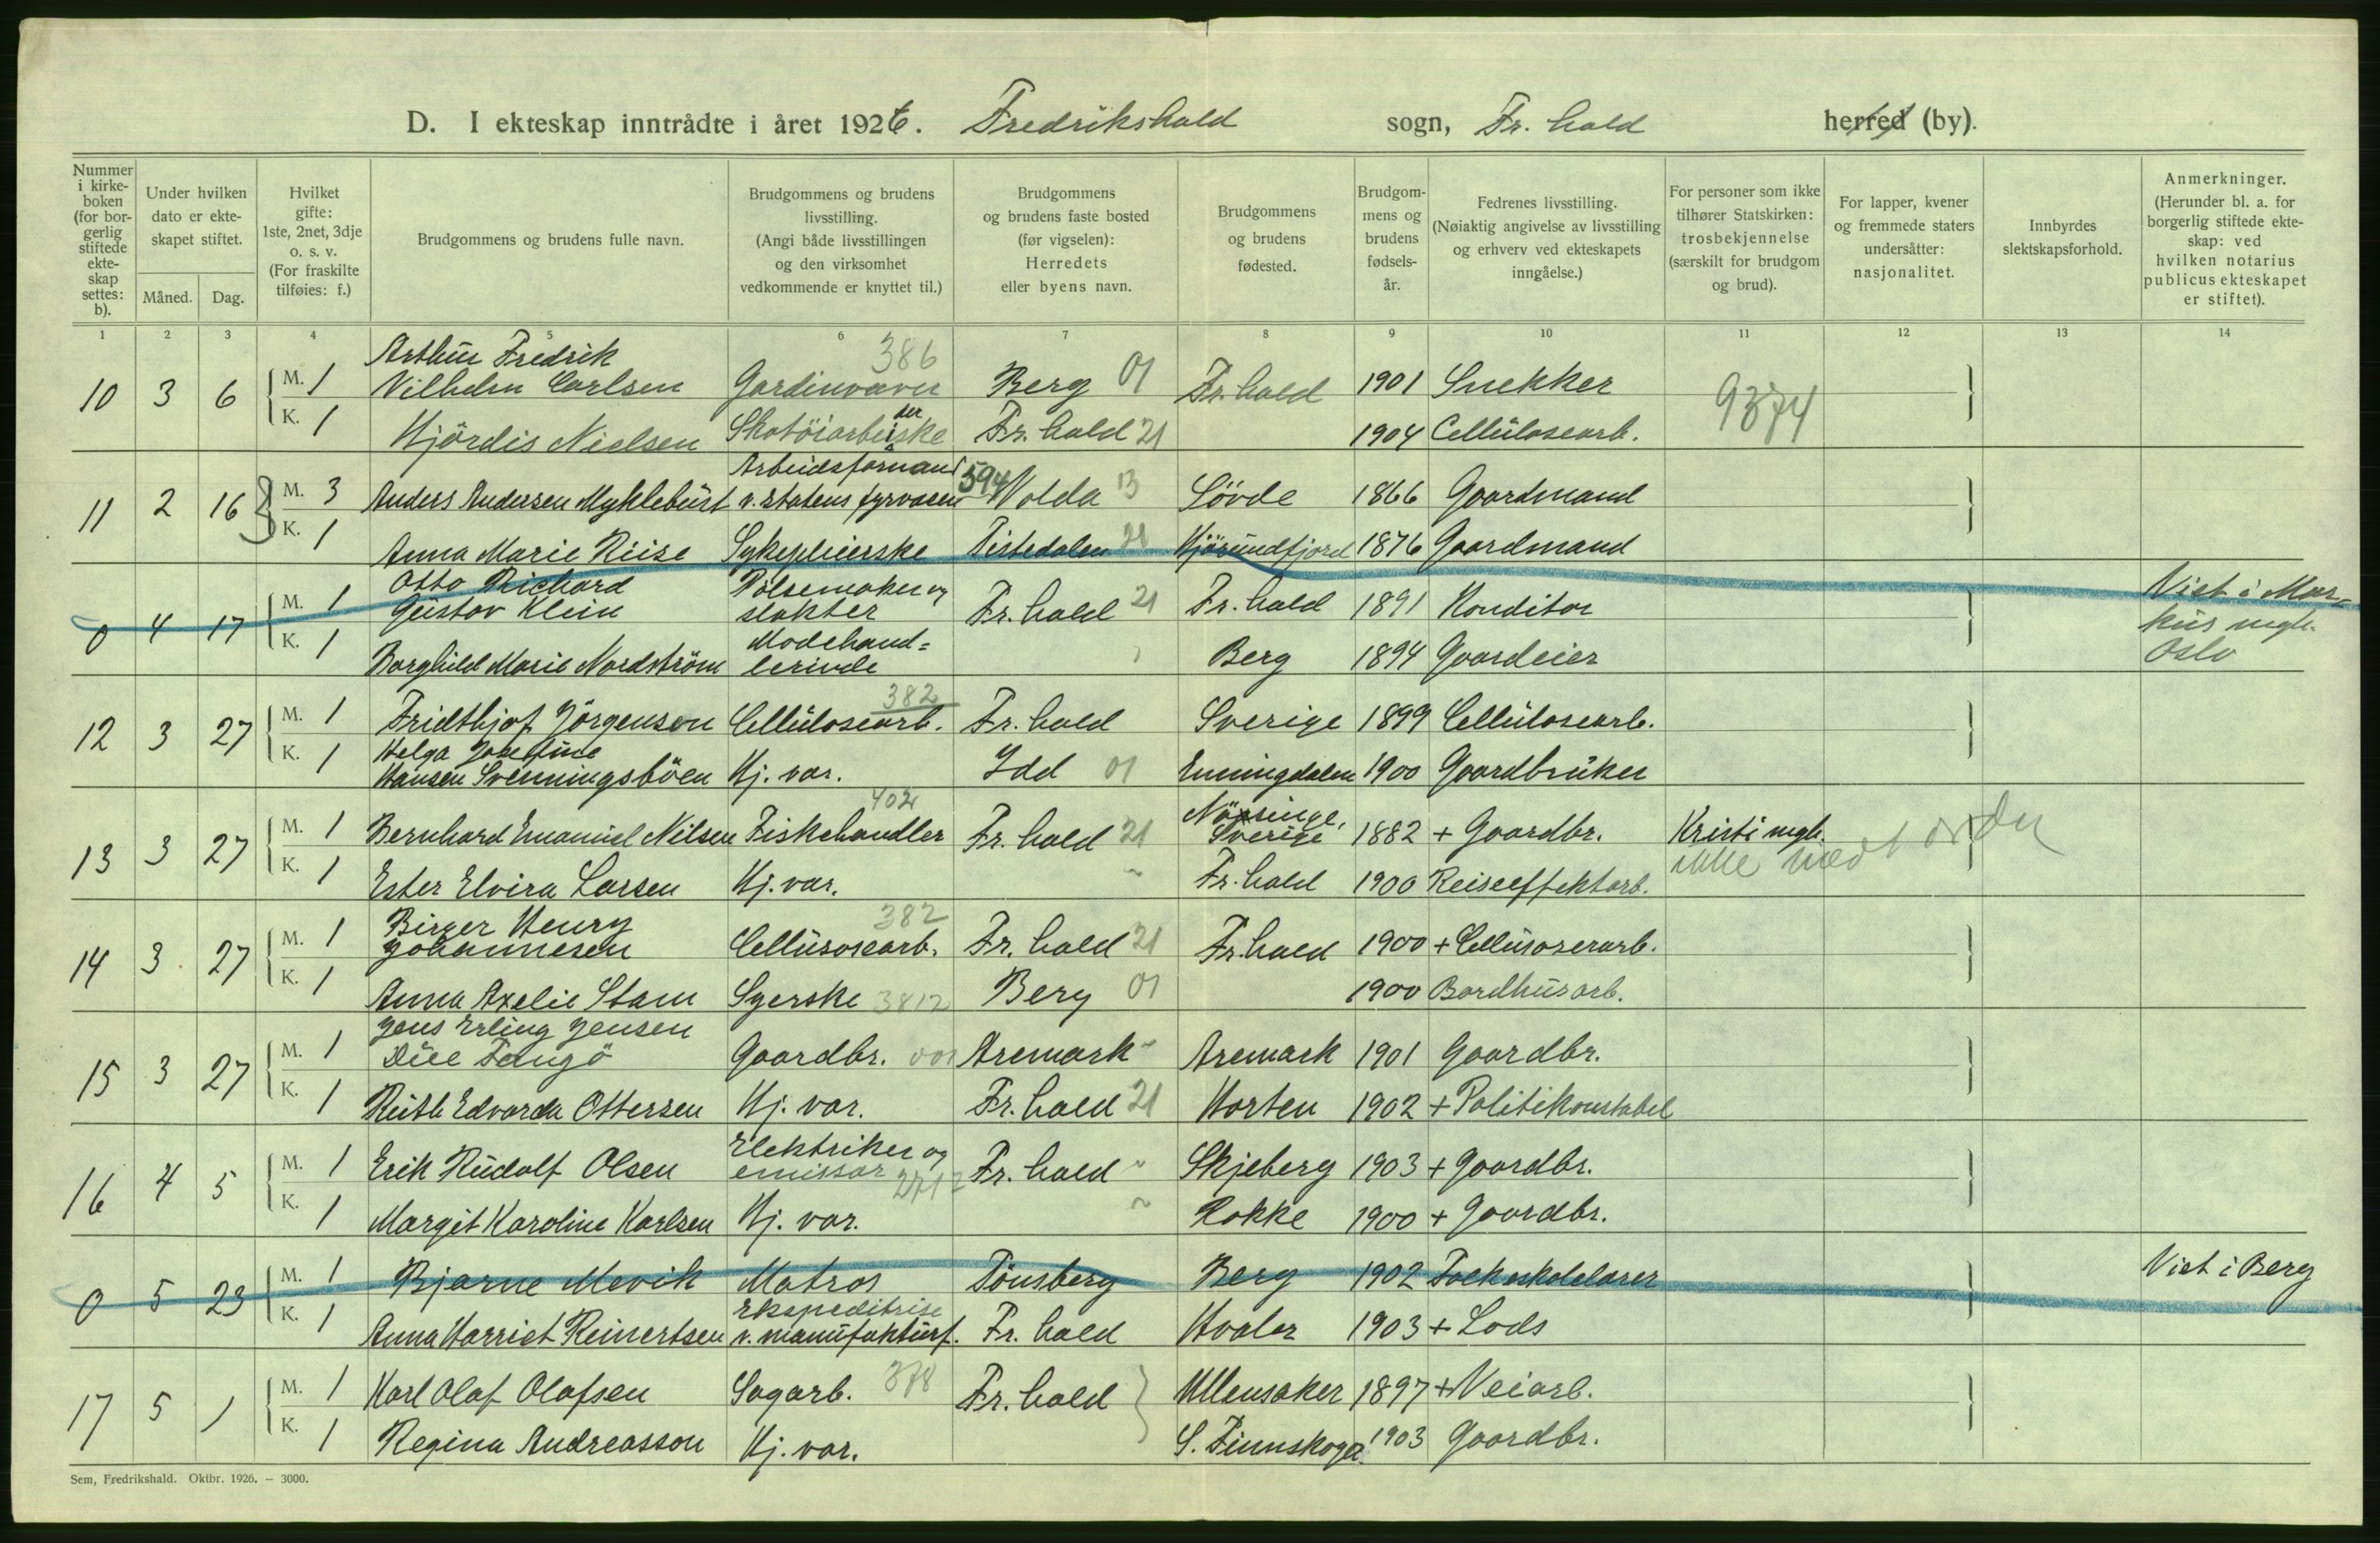 D. I ekteskap inntrådte i året 1926. Fredrikshald sogn, Fr. hald herred (by).
Nummer i kirkeboken (for borgerlig stiftede ekteskap settes: b).
Under hvilken dato er ekteskapet stiftet.
Måned. Dag.
Hvilket gifte: 1ste, 2net, 3dje o. s. v. (For fraskilte tilføies: f.)
Brudgommens og brudens fulle navn.
Brudgommens og brudens livsstilling. (Angi både livsstillingen og den virksomhet vedkommende er knyttet til.)
Brudgommens og brudens faste bosted (før vigselen): Herredets eller byens navn.
Brudgommens og brudens fødested.
Brudgommens og brudens fødselsår.
Fedrenes livsstilling. (Nøiaktig angivelse av livsstilling og erhverv ved ekteskapets inngåelse.)
For personer som ikke tilhører Statskirken: trosbekjennelse (særskilt for brudgom og brud).
For lapper, kvener og fremmede staters undersåtter: nasjonalitet.
Innbyrdes slektskapsforhold.
Anmerkninger. (Herunder bl. a. for borgerlig stiftede ekteskap: ved hvilken notarius publicus ekteskapet er stiftet).
1 2 3 4 5 6 7 8 9 10 11 12 13 14
10 3 6 M. 1 Arthur Fredrik Vilhelm Carlsen Gardinvæver 386 Berg 01 Fr. hald 1901 Snekker 9374
K. 1 Hjördis Nielsen Skotöiarbeiderske Fr. hald 21 1904 Cellulosearb.
11 2 16 M. 3 Anders Andersen Myklebust Arbeidsformand v. statens fyrvæsen 594 Volda 13 Sövde 1866 Gaardmand
K. 1 Anna Marie Riise Sykepleierske Tistedalen 21 Hjörundfjord 1876 Gaardmand
0 4 17 M. 1 Otto Richard Gustav Klein Pölsemaker og slakter Fr. hald 21 Fr. hald 1891 Konditor Viet i Markus mgh. Oslo
K. 1 Borghild Marie Nordström Modehandlerinde Berg 1894 Gaardeier
12 3 27 M. 1 Fridthjof Jörgensen Cellulosearb. 382 Fr. hald Sverige 1899 Cellulosearb.
K. 1 Helga Josefine Hansen Svenningsböen Hj. vær. Idd 01 Enningdalen 1900 Gaardbruker
13 3 27 M. 1 Bernhard Emanuel Nilsen Fiskehandler 402 Fr. hald 21 Näsinge, Sverige 1882 + Gaardbr. Kristi mgh. ikke med
K. 1 Ester Elvira Larsen Hj. vær. Fr. hald 1900 Reiseeffektarb.
14 3 27 M. 1 Birger Henry Johannesen Cellulosearb. 382 Fr. hald 21 Fr. hald 1900 + Cellulosearb.
K. 1 Anna Axelie Stam Syerske 3812 Berg 01 1900 Bordhusarb.
15 3 27 M. 1 Jens Erling Jensen Aremark Gaardbr. Aremark 1901 Gaardbr.
K. 1 Ruth Edvarda Ottersen Hj. vær. Fr. hald 21 Horten 1902 + Politikonstabel
16 4 5 M. 1 Erik Rudolf Olsen Elektriker og emissær Fr. hald Skjeberg 1903 + Gaardbr.
K. 1 Margit Karoline Karlsen Hj. vær. Rokke 1900 + Gaardbr.
0 5 23 M. 1 Bjarne Mevik Matros Tönsberg Berg 1902 Folkeskolelærer Viet i Berg
K. 1 Anna Harriet Reinertsen Ekspeditrise v. manufakturf. Fr. hald Hvaler 1903 + Lods
17 5 1 M. 1 Karl Olaf Olafsen Sagarb. 378 Fr. hald Ullensaker 1897 + Veiarb.
K. 1 Regina Andreasson Hj. vær. S. Finnskoga 1903 Gaardbr.
Sem, Fredrikshald. Oktbr. 1926. – 3000.